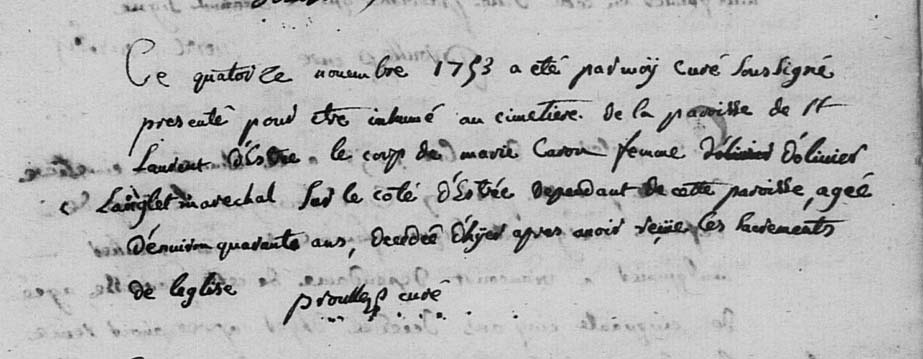 Ce quatorze novembre 1753 a eté par moÿ curé soussigné
presenté pour etre inhumé au cimetiere de la paroisse de St
Laurent d'Estrée le corp de marie Caron femme d'olivier d'olivier
Langlet marechal sur le coté d'Estrée dependant de cette paroisse, ageé
d'environ quarante ans, decedeé d'hÿer apres avoir reçue les sacrements
de leglise curé